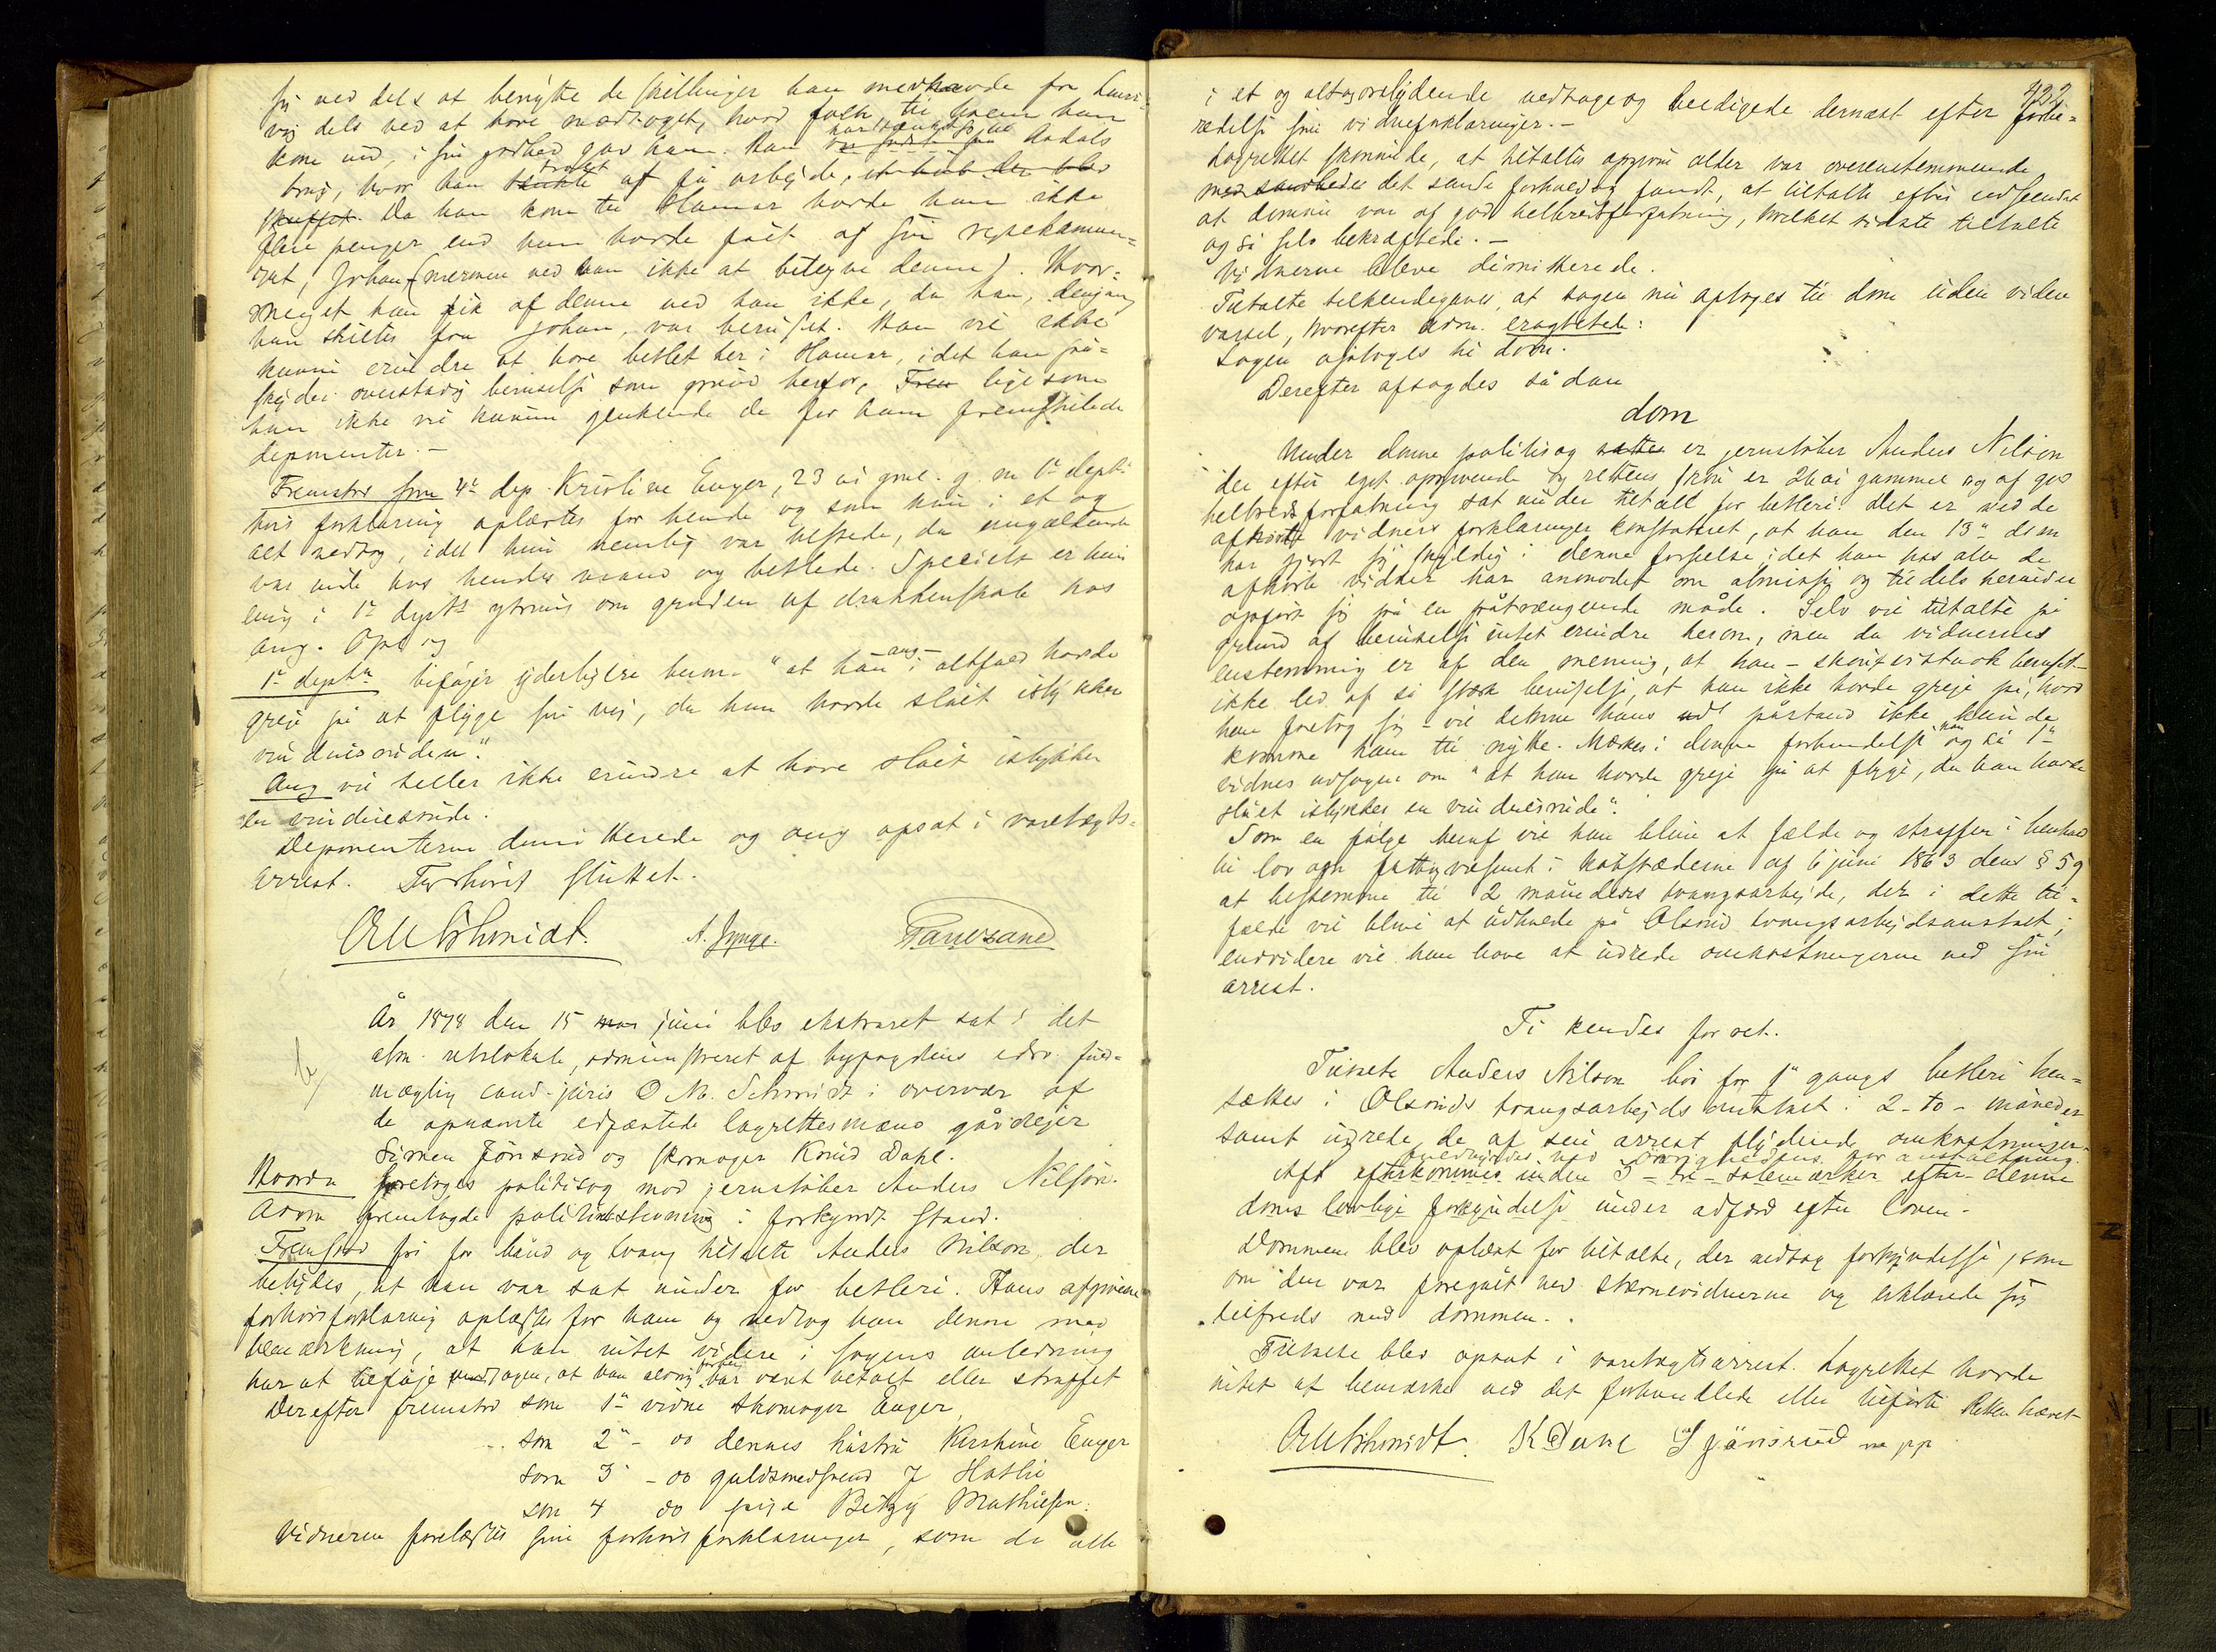 sig ved dels at benytte de skillinger han medhavde fra
vig dels ved at have modtaget, hvad folk, til hvem han
kom ind, i sin godhed gav ham. Han Aadals
brug, hvor han at få arbejde, 
skuffet. Da han kom til Hamar havde han ikke
flere penger end hvad han havde fået af sin rejsekamme=
rat, Johan (nærmere ved han ikke at betegne denne). Hvor=
meget han fik af denne ved han ikke, da han, dengang
han skiltes fra Johan, var beruset. Han vil ikke
kunne erindre at have betlet her i Hamar, idet han på=
skyder overstadig beruselse som grund herfor, ligesom
han ikke vil kunne gjenkende de for ham fremstillede
deponenter.—
Fremstod som 4de dep. Kristine Enger, 23 år gml. g. m. 1ste dept.
hvis forklaring oplæstes for hende og som hun i et og
alt vedtog, idet hun nemlig var tilstede, da angældende
var inde hos hendes mand og betlede. Specielt er hun
enig i 1ste depts ytring om graden af drukkenskab hos
ang. Opl. og
1ste deptn tilføjer yderligere herom "at han — ang — i altfald havde
greje på at flygte sin vej, da han havde slået istykker
vinduesruden".
Ang vil heller ikke erindre at have slået istykker
en vinduesrude.
Deponenterne demitterede og ang opsat i varetægts=
arrest. Forhøret sluttet.
O M Schmidt. A. Fanesand
År 1878 den 15 juni blev ekstraret sat i det
alm. retslokale, administreret af byfogdens edsv. fuld=
mægtig cand. juris O M. Schmidt i overvær af
de opnævnte edfæstede lagrettesmænd gårdejer
Simen Jönsrud og skomager Knud Dahl.
Hvorda foretoges politisag mod jernstøber Anders Nilsön.
Adm fremlagde politistevning i forkyndt stand.
Fremstod fri for bånd og tvang tiltalte Anders Nilson, der
betydes, at han var sat under for betleri. Hans afgivne
forhørsforklaring oplæstes for ham og vedtog han denne med
bemærkning, at han intet videre i sagens anledning
har at tilføje at han aldrig før har været tiltalt eller straffet
Derefter fremstod som 1ste vidne skomager Enger,
som 2det - do dennes hustru Kristine Enger
som 3 - do guldsmedsvend J Hatli
som 4 do pige Betzy Mathiesen.
Vidnerne forelæstes sine forhørsforklaringer, som de alle
422
i et og alt ovelydende vedtoge og beedigede dernæst efter forbe=
redelse sine vidneforklaringer.—
Lagrettet skønnede, at tiltaltes opgivne alder var overensstemmende
med det sande forhold og fandt, at tiltalte efter udseendet
at dømme var af god helbredsforfatning, hvilket sidste tiltalte
også selv bekræftede.—
Vidnerne bleve dimitterede.
Tiltalte tilkendegaves, at sagen nu optoges til dom uden videre
varsel, hvorefter adm. eragtede:
Sagen optoges til dom.
Derefter afsagdes sådan
dom
Under denne politisag er jernstøber Anders Nilson
der efter eget opgivende og rettens skøn er 26 år gammel og af god
helbredsforfatning sat under tiltale for betleri. Det er ved de
afhørte vidners forklaringer konstateret, at han den 13de dsm
har gjort sig skyldig i denne forseelse, idet han hos alle de
afhørte vidner har anmodet om almisse og tildels herunder
opført sig på en påtrængende måde. Selv vil tiltalte på
grund af beruselse intet erindre herom, men da vidnernes
enstemmig er af den mening, at han — skønt stærk beruset —
ikke led af så stærk beruselse, at han ikke havde greje på, hvad
han foretog sig — vil denne hans påstand ikke kunde
komme ham til nytte. Mærkes i denne forbindelse kan også 1ste
vidnes udsagn om "at han havde greje på at flygte, da han havde
slået istykker en vinduesrude".
Som en følge heraf vil han blive at fælde og straffes i henhold
til lov om fattigvæsenet i købstæderne af 6 juni 1863 dens § 59
at bestemme til 2 måneders tvangsarbejde, der i dette til=
fælde vil blive at udholde på Olsrud tvangsarbejdsanstalt;
endvidere vil han have at udrede omkostningerne ved sin
arrest.
Ti kendes for ret.
Tiltalte Anders Nilson bør for 1ste gangs betleri hen=
sættes i Olsruds tvangsarbejdsanstalt i 2 - to - måneder
samt udrede de af sin arrest flydende omkostninger.
ved øvrighedens foranstaltning.
At efterkommes inden 3 - tre - solemærker efter denne
doms lovlige forkyndelse under adfærd efter loven.
Dommen blev oplæst for tiltalte, der vedtog forkyndelse, som
om den var foregået ved stævnevidnerne og erklærede sig
tilfreds med dommen.
Tiltalte blev opsat i varetægtsarrest. Lagrettet havde
intet at bemærke ved det forhandlede eller tilførte Retten hævet
O M Schmidt. K Dahl S Jönsrud m p p